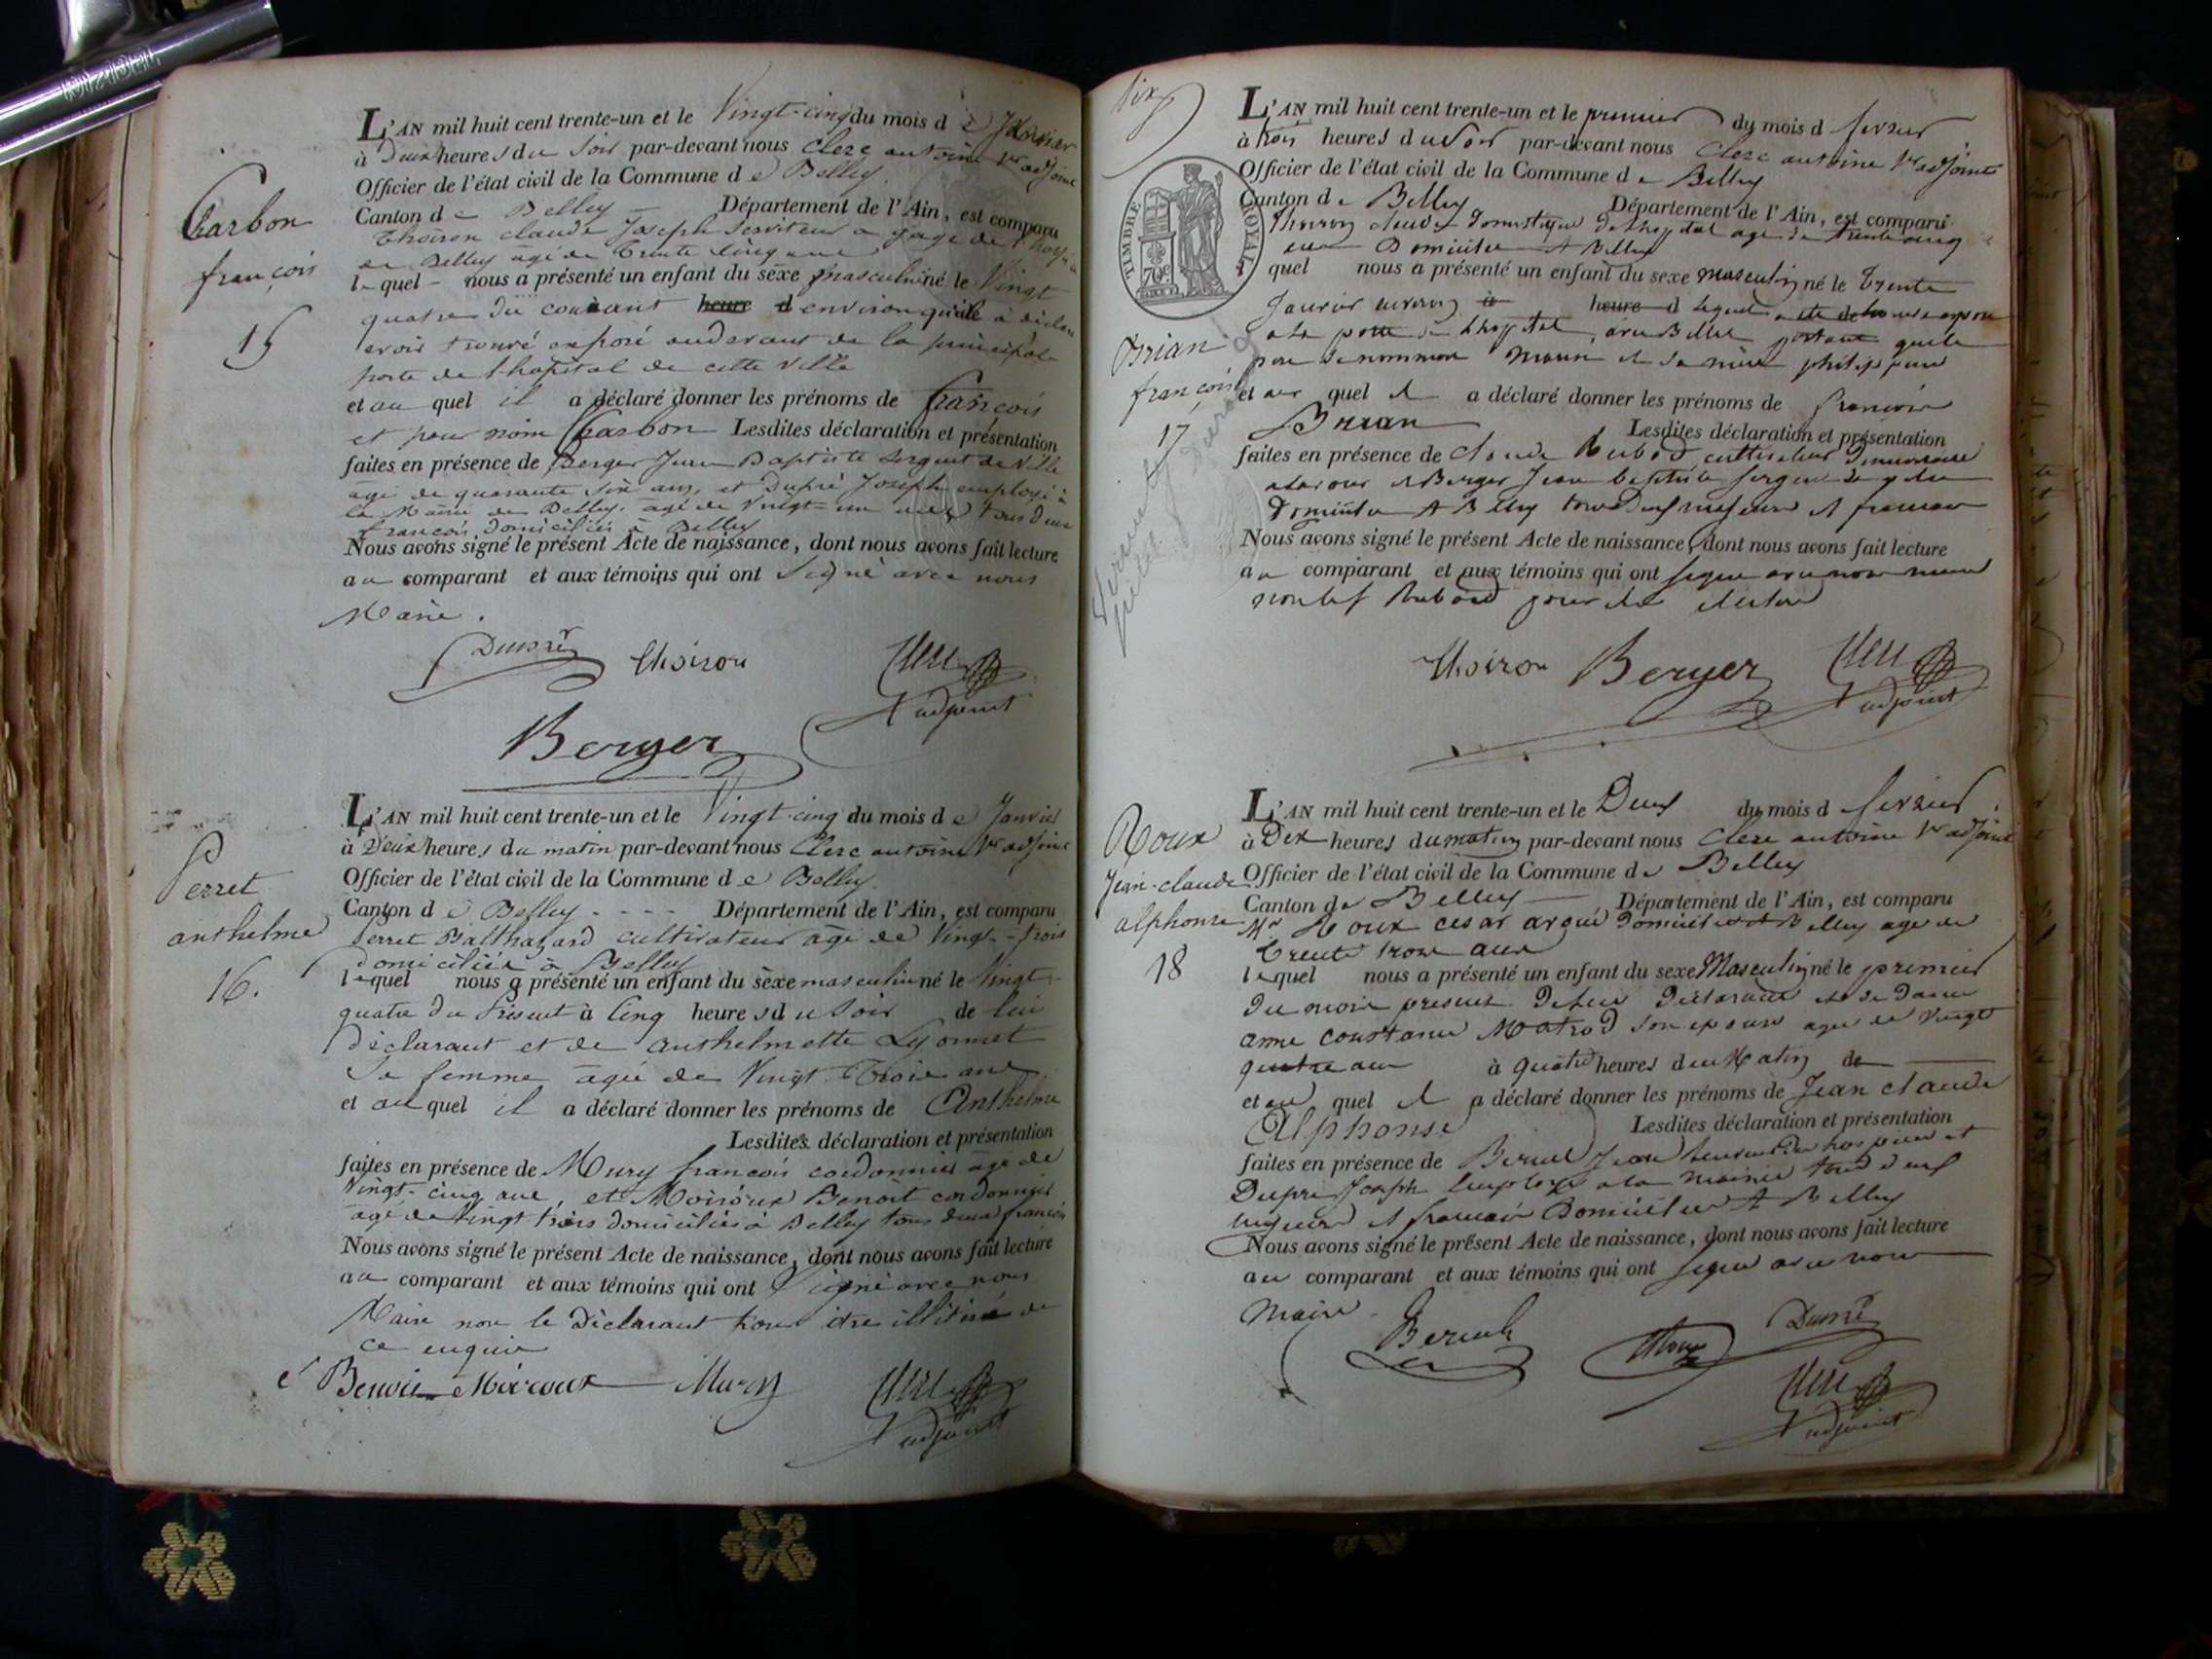 Carbon
françois
15
L'AN mil huit cent trente-un et le Vingt-cinq du mois de Janvier
à Deux heures du Soir par-devant nous Clerc antoine 1er adjoint
Officier de l'état civil de la Commune de Belley.
Canton de Belley Département de l'Ain, est comparu
Thoiron claude Joseph Serviteur a gage de l'
de Belley agé de Trente cinq ans
lequel nous a présenté un enfant du sexe masculin né le Vingt
quatre du courant heure d environ qu'il a déclaré
avoir trouvé exposé audevant de la principale
porte de l'hopital de cette Ville
et au quel il a déclaré donner les prénoms de françois
et pour nom Carbon Lesdites déclaration et présentation
faites en présence de Berger Jean Baptiste Sergent de Ville
agé de quarante Six ans, et Dupré Joseph employé à
la Mairie de Belley, agé de Vingt-un ans tous deux
francois, domiciliés à Belley
Nous avons signé le présent Acte de naissance, dont nous avons fait lecture
au comparant et aux témoins qui ont Signé avec nous
Maire.
Dupré Thoiron Clerc
adjoint
Berger
Perret
anthelme
16.
L'AN mil huit cent trente-un et le Vingt-cinq du mois de Janvier
à Deux heures du matin par-devant nous Clerc antoine 1er adjoint
Officier de l'état civil de la Commune de Belley
Canton de Belley Département de l'Ain, est comparu
Perret Balthazard cultivateur agé de Vingt-trois
domicilié à Belley
lequel nous a présenté un enfant du sexe masculin né le Vingt-
quatre du présent à Cinq heures du Soir de lui
déclarant et de anthelmette Lyonnet
Sa femme agée de Vingt Trois ans
et au quel il a déclaré donner les prénoms de Anthelme
Lesdites déclaration et présentation
faites en présence de Mury françois cordonnier agé de
Vingt-cinq ans, et Moiroux Benoit cordonnier
agé de Vingt trois domiciliés à Belley tous deux francois
Nous avons signé le présent Acte de naissance, dont nous avons fait lecture
au comparant et aux témoins qui ont Signé avec nous
Maire non le Déclarant pour être illitéré de
ce enquis
Benoit Moiroux Mury Clerc
adjoint
dix
TIMBRE ROYAL
70c
Brian
françois
17
L'AN mil huit cent trente-un et le premier du mois d fevrier
à trois heures du Soir par-devant nous Clerc antoine 1er adjoint
Officier de l'état civil de la Commune de Belley
Canton de Belley Département de l'Ain, est comparu
Thoiron claude Domestique de l'hopital agé de trente cinq
ans Domicilié A Belley
quel nous a présenté un enfant du sexe masculin né le Trente
Janvier environ heure d lequel a été exposé
a la porte de l'hopital, avec Billet portant que le
pere se nommoit et sa mère philippine
et au quel il a déclaré donner les prénoms de francois
Brian Lesdites déclaration et présentation
faites en présence de Claude Rubod cultivateur demeurant
et Berger Jean Baptiste sergent de ville
Domicilié A Belley tous Deux majeurs et francois
Nous avons signé le présent Acte de naissance, dont nous avons fait lecture
au comparant et aux témoins qui ont signé avec nous maire
non led Rubod pour
Thoiron Berger Clerc
adjoint
Roux
Jean-claude
alphonse
18
L'AN mil huit cent trente-un et le Deux du mois d fevrier
à Dix heures du matin par-devant nous Clerc antoine 1er adjoint
Officier de l'état civil de la Commune de Belley
Canton de Belley Département de l'Ain, est comparu
Mr Roux cesar avoué domicilié A Belley agé de
trente trois ans
lequel nous a présenté un enfant du sexe Masculin né le premier
du mois present de lui Déclarant et de Dame
anne constance Matrod son epouse agée de Vingt
quatre ans à quatre heures du Matin de
et au quel il a déclaré donner les prénoms de Jean claude
Alphonse Lesdites déclaration et présentation
faites en présence de Jean hospice et
Dupré Joseph Employé a la mairie tous deux
majeurs et francois Domiciliés A Belley
Nous avons signé le présent Acte de naissance, dont nous avons fait lecture
au comparant et aux témoins qui ont signé avec nous
Maire
Roux Dupré
Clerc
adjoint